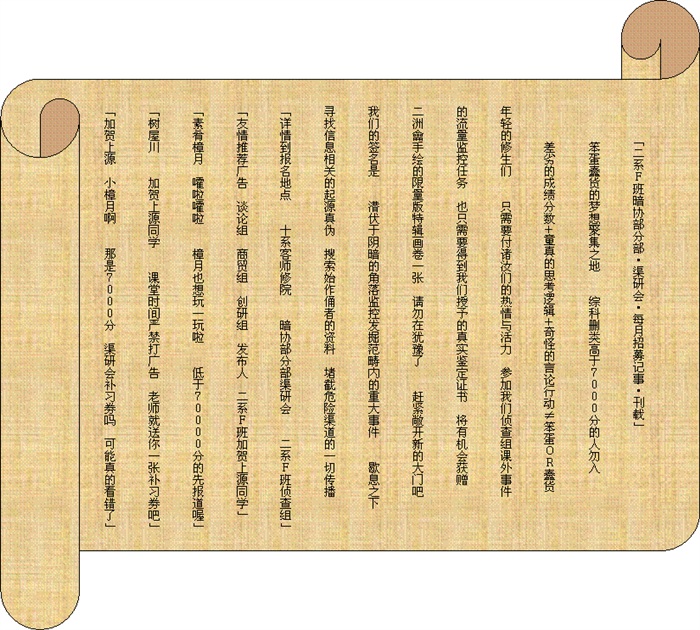 「二系F班暗协部分部·渠研会·每月招募记事·刊载」
笨蛋蠢货的梦想聚集之地　综科删类高于7000分的人勿入
差劣的成绩分数+童真的思考逻辑+奇怪的言论行动≠笨蛋OR蠢货
年轻的修生们　只需要付诸汝们的热情与活力　参加我们侦查组课外事件
的流量监控任务　也只需要得到我们授予的真实鉴定证书　将有机会获赠
二洲龠手绘的限量版特辑画卷一张　请勿在犹豫了　赶紧敞开新的大门吧
我们的签名是　潜伏于阴暗的角落监控发掘范畴内的重大事件　歇息之下
寻找信息相关的起源真伪　搜索始作俑者的资料　堵截危险渠道的一切传播
「详情到报名地点　十系客师修院　暗协部分部渠研会　二系F班侦查组」
「友情推荐广告　谈论组　商贸组　创研组　发布人　二系F班加贺上源同学」
「素肴樟月　嚯啦嚯啦　樟月也想玩一玩啦　低于70000分的先报道喔」
「树屋川　加贺上源同学　课堂时间严禁打广告　老师就送你一张补习券吧」
「加贺上源　小樟月啊　那是7000分　渠研会补习券吗　可能真的看错了」